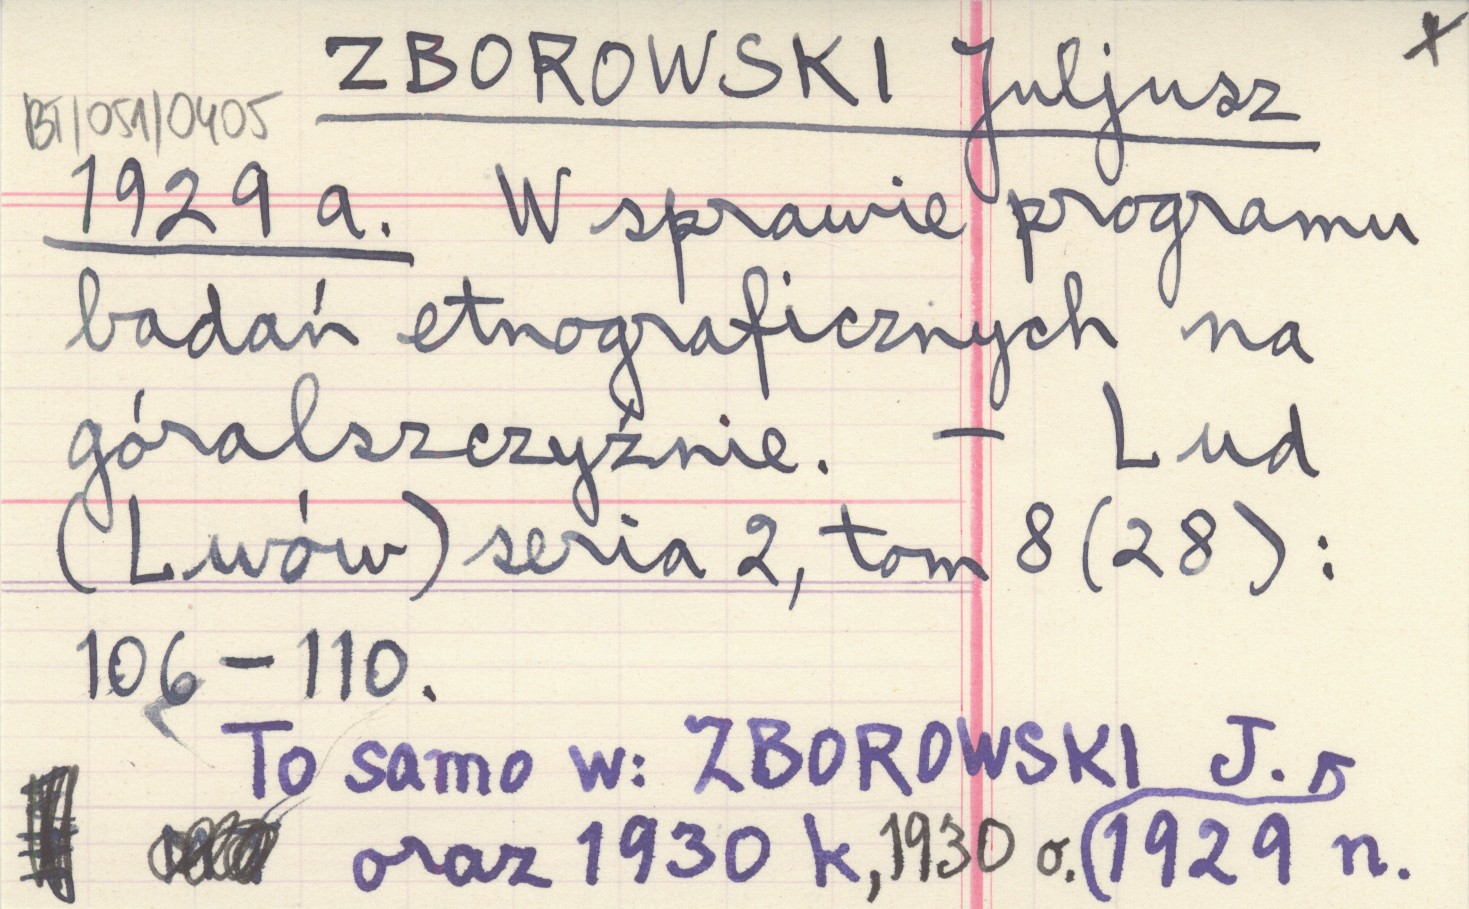 ZBOROWSKI Juljusz
BT/051/0405
1929 a. W sprawie programu
badań etnograficznych na
góralszczyźnie. — Lud
(Lwów) seria 2, tom 8 (28) :
106 — 110.
To samo w: ZBOROWSKI J.
oraz 1930 k, 1930 o. (1929 n.